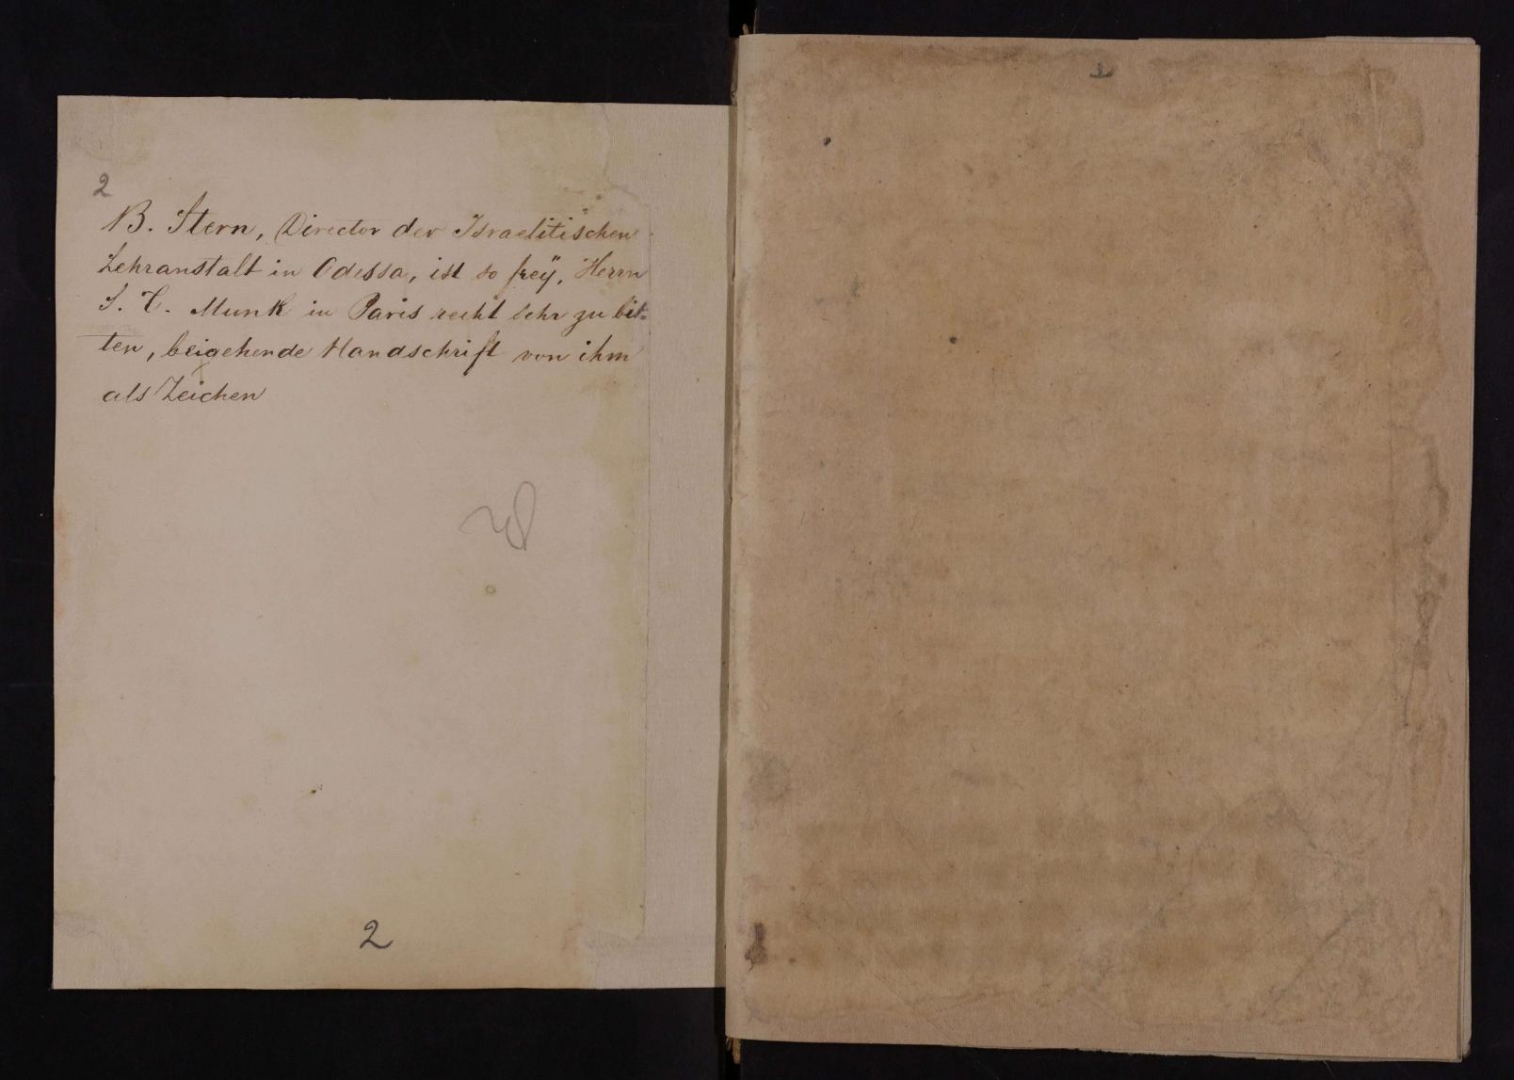 2
B. Stern, Director der Israelitischen
Lehranstalt in Odessa, ist so freÿ, Herrn
S. C. Munk in Paris recht sehr zu bit=
ten, beigehende Handschrift von ihm
als Zeichen
2